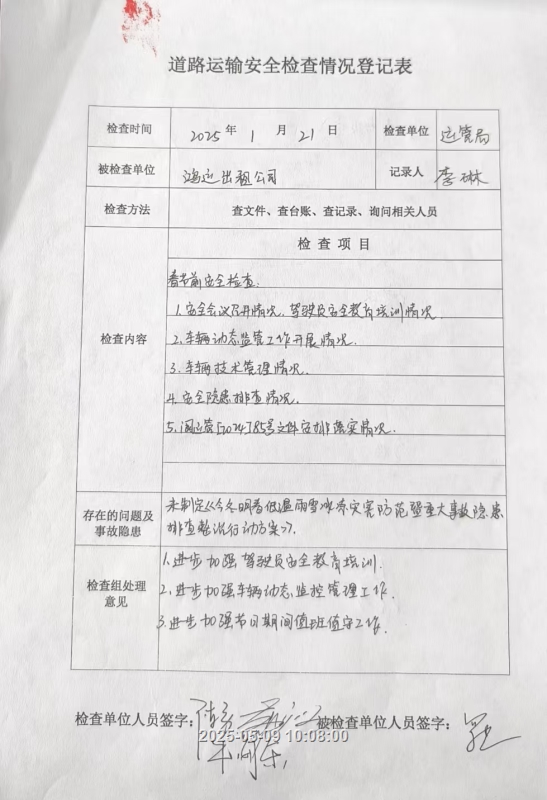 道路运输安全检查情况登记表
检查时间 2025 年 1 月 21 日 检查单位 运管局
被检查单位 鸿运出租公司 记录人 李琳
检查方法 查文件、查台账、查记录、询问相关人员
检查内容
检 查 项 目
春节前安全检查:
1.安全会议召开情况,驾驶员安全教育培训情况.
2.车辆动态监管工作开展情况.
3.车辆技术管理情况.
4.安全隐患排查情况.
5.运管[2024]85号文件安排落实情况.
存在的问题及
事故隐患
未制定《今冬明春低温雨雪冰冻灾害防范暨重大事故隐患
排查整治行动方案》.
检查组处理
意见
1.进步加强驾驶员安全教育培训.
2.进步加强车辆动态监控管理工作.
3.进步加强节日期间值班值守工作.
检查单位人员签字: 被检查单位人员签字:
2025-05-09 10:08:00